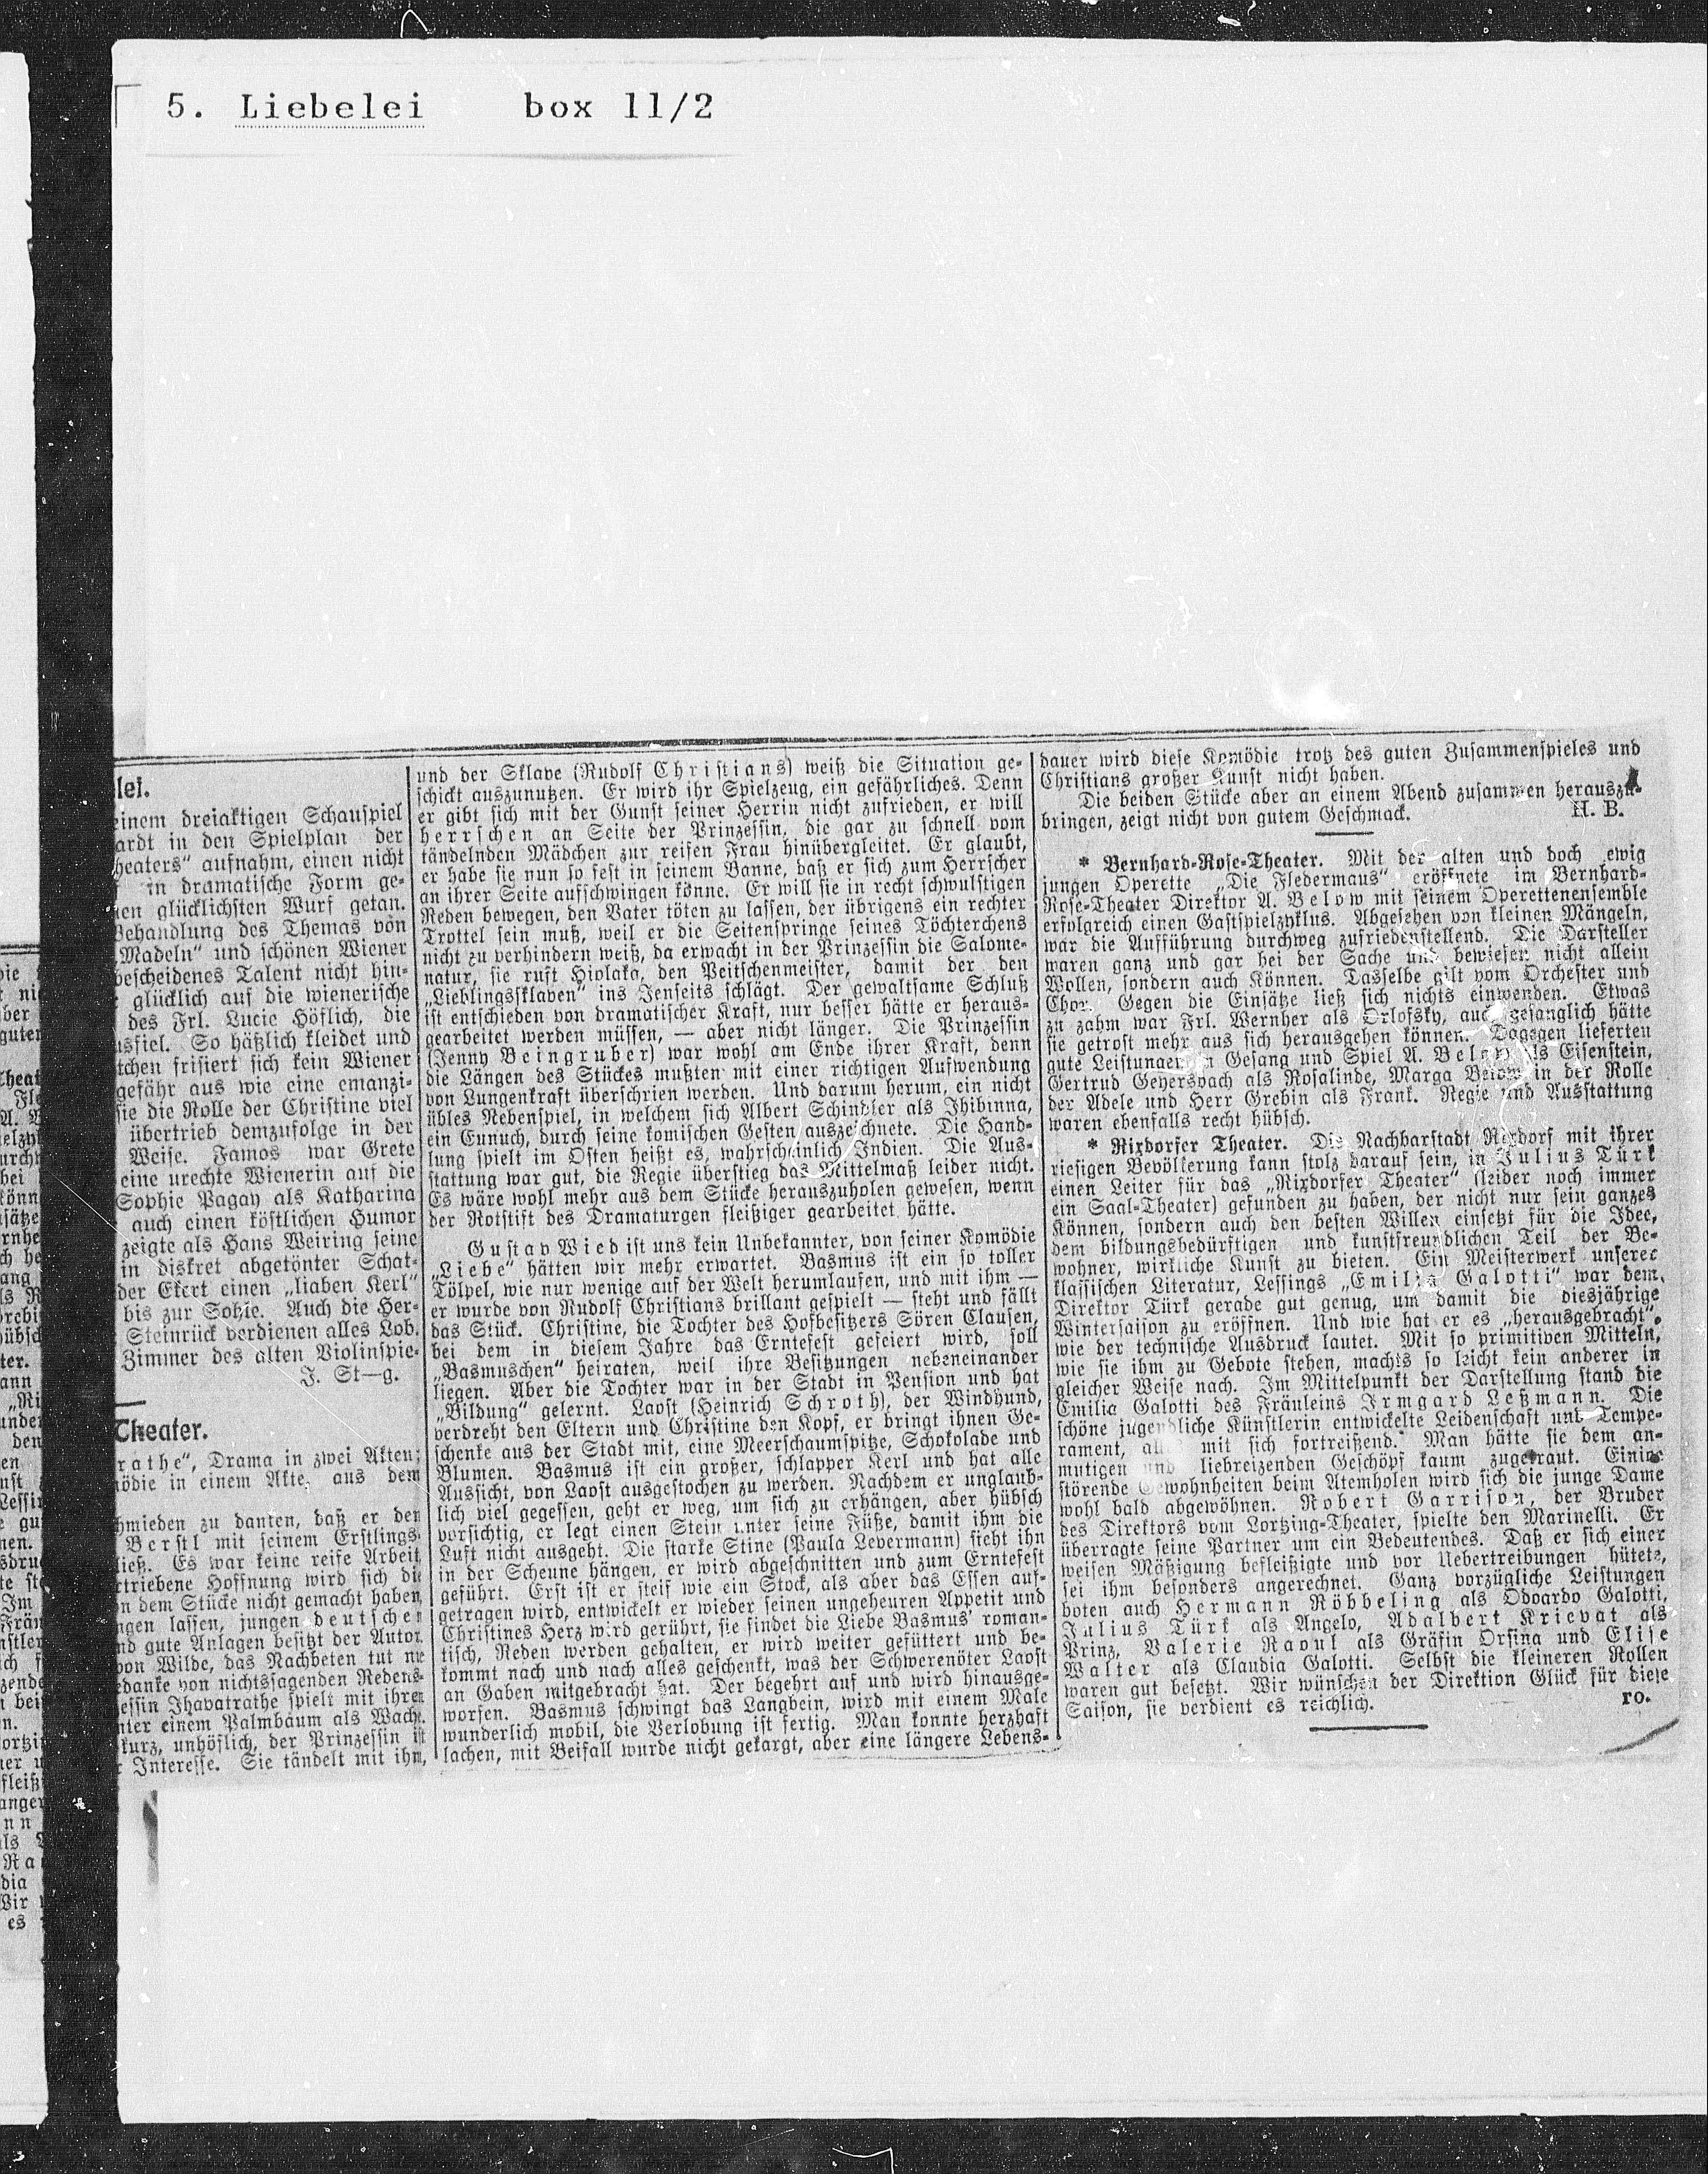 5. Liebelei box 11/2
lei.
einem dreiaktigen Schauspiel
ardt in den Spielplan der
heaters" aufnahm, einen nicht
in dramatische Form ge-
en glücklichsten Wurf getan.
Behandlung des Themas von
Madeln" und schönen Wiener
bescheidenes Talent nicht hin-
glücklich auf die wienerische
des Frl. Lucie Höflich, die
usfiel. So häßlich kleidet und
tchen frisiert sich kein Wiener
gefähr aus wie eine emanzi-
sie die Rolle der Christine viel
übertrieb demzufolge in der
Weise. Famos war Grete
eine urechte Wienerin auf die
Sophie Pagay als Katharina
auch einen köstlichen Humor
zeigte als Hans Weiring seine
in diskret abgetönter Schat-
der Ekert einen „liaben Kerl"
bis zur Sohle. Auch die Her-
Steinrück verdienen alles Lob.
Zimmer des alten Violinspie-
J. St—g.
Theater.
rathe", Drama in zwei Akten;
ödie in einem Akte, aus dem
hmieden zu danken, daß er den
Berstl mit seinem Erstlings-
ließ. Es war keine reife Arbeit
rtriebene Hoffnung wird sich die
n dem Stücke nicht gemacht haben,
ngen lassen, jungen deutschen
nd gute Anlagen besitzt der Autor.
von Wilde, das Nachbeten tut nie
edanke von nichtssagenden Redens-
essin Jhavatrathe spielt mit ihren
nter einem Palmbaum als Wach.
kurz, unhöflich, der Prinzessin ist
Interesse. Sie tändelt mit ihm,
und der Sklave (Rudolf Christians) weiß die Situation ge-
schickt auszunutzen. Er wird ihr Spielzeug, ein gefährliches. Denn
er gibt sich mit der Gunst seiner Herrin nicht zufrieden, er will
herrschen an Seite der Prinzessin, die gar zu schnell vom
tändelnden Mädchen zur reifen Frau hinübergleitet. Er glaubt,
er habe sie nun so fest in seinem Banne, daß er sich zum Herrscher
an ihrer Seite aufschwingen könne. Er will sie in recht schwulstigen
Reden bewegen, den Vater töten zu lassen, der übrigens ein rechter
Trottel sein muß, weil er die Seitensprünge seines Töchterchens
nicht zu verhindern weiß, da erwacht in der Prinzessin die Salome-
natur, sie ruft Hiolaka, den Peitschenmeister, damit der den
„Lieblingssklaven" ins Jenseits schlägt. Der gewaltsame Schluß
ist entschieden von dramatischer Kraft, nur besser hätte er heraus-
gearbeitet werden müssen, — aber nicht länger. Die Prinzessin
(Jenny Beingruber) war wohl am Ende ihrer Kraft, denn
die Längen des Stückes mußten mit einer richtigen Aufwendung
von Lungenkraft überschrien werden. Und darum herum, ein nicht
übles Nebenspiel, in welchem sich Albert Schindler als Jhibinna,
ein Eunuch, durch seine komischen Gesten auszeichnete. Die Hand-
lung spielt im Osten heißt es, wahrscheinlich Indien. Die Aus-
stattung war gut, die Regie überstieg das Mittelmaß leider nicht.
Es wäre wohl mehr aus dem Stücke herauszuholen gewesen, wenn
der Rotstift des Dramaturgen fleißiger gearbeitet hätte.
Gustav Wied ist uns kein Unbekannter, von seiner Komödie
„Liebe" hätten wir mehr erwartet. Basmus ist ein so toller
Tölpel, wie nur wenige auf der Welt herumlaufen, und mit ihm —
er wurde von Rudolf Christians brillant gespielt — steht und fällt
das Stück. Christine, die Tochter des Hofbesitzers Sören Clausen,
bei dem in diesem Jahre das Erntefest gefeiert wird, soll
„Basmuschen" heiraten, weil ihre Besitzungen nebeneinander
liegen. Aber die Tochter war in der Stadt in Pension und hat
„Bildung" gelernt. Laost (Heinrich Schroth), der Windhund,
verdreht den Eltern und Christine den Kopf, er bringt ihnen Ge-
schenke aus der Stadt mit, eine Meerschaumspitze, Schokolade und
Blumen. Basmus ist ein großer, schlapper Kerl und hat alle
Aussicht, von Laost ausgestochen zu werden. Nachdem er unglaub-
lich viel gegessen, geht er weg, um sich zu erhängen, aber hübsch
vorsichtig, er legt einen Stein unter seine Füße, damit ihm die
Luft nicht ausgeht. Die starke Stine (Paula Levermann) sieht ihn
in der Scheune hängen, er wird abgeschnitten und zum Erntefest
geführt. Erst ist er steif wie ein Stock, als aber das Essen auf-
getragen wird, entwickelt er wieder seinen ungeheuren Appetit und
Christines Herz wird gerührt, sie findet die Liebe Basmus' roman-
tisch, Reden werden gehalten, er wird weiter gefüttert und be-
kommt nach und nach alles geschenkt, was der Schwerenöter Laost
an Gaben mitgebracht hat. Der begehrt auf und wird hinausge-
worfen. Basmus schwingt das Langbein, wird mit einem Male
wunderlich mobil, die Verlobung ist fertig. Man konnte herzhaft
lachen, mit Beifall wurde nicht gekargt, aber eine längere Lebens-
dauer wird diese Komödie trotz des guten Zusammenspieles und
Christians großer Kunst nicht haben.
Die beiden Stücke aber an einem Abend zusammen herauszu-
bringen, zeigt nicht von gutem Geschmack. H. B.
* Bernhard-Rose-Theater. Mit der alten und doch ewig
jungen Operette „Die Fledermaus" eröffnete im Bernhard-
Rose-Theater Direktor A. Below mit seinem Operettenensemble
erfolgreich einen Gastspielzyklus. Abgesehen von kleinen Mängeln,
war die Aufführung durchweg zufriedenstellend. Die Darsteller
waren ganz und gar bei der Sache und bewiesen nicht allein
Wollen, sondern auch Können. Dasselbe gilt vom Orchester und
Chor. Gegen die Einsätze ließ sich nichts einwenden. Etwas
zu zahm war Frl. Wernher als Orlofsky, auch gesanglich hätte
sie getrost mehr aus sich herausgehen können. Dagegen lieferten
gute Leistungen in Gesang und Spiel A. Below als Eisenstein,
Gertrud Geyersbach als Rosalinde, Marga Below in der Rolle
der Adele und Herr Grebin als Frank. Regie und Ausstattung
waren ebenfalls recht hübsch.
* Rixdorfer Theater. Die Nachbarstadt Rixdorf mit ihrer
riesigen Bevölkerung kann stolz darauf sein, in Julius Türk
einen Leiter für das „Rixdorfer Theater" (leider noch immer
ein Saal-Theater) gefunden zu haben, der nicht nur sein ganzes
Können, sondern auch den besten Willen einsetzt für die Idee,
dem bildungsbedürftigen und kunstfreundlichen Teil der Be-
wohner, wirkliche Kunst zu bieten. Ein Meisterwerk unserer
klassischen Literatur, Lessings „Emilia Galotti" war dem
Direktor Türk gerade gut genug, um damit die diesjährige
Wintersaison zu eröffnen. Und wie hat er es „herausgebracht",
wie der technische Ausdruck lautet. Mit so primitiven Mitteln,
wie sie ihm zu Gebote stehen, machts so leicht kein anderer in
gleicher Weise nach. Im Mittelpunkt der Darstellung stand die
Emilia Galotti des Fräuleins Irmgard Leßmann. Die
schöne jugendliche Künstlerin entwickelte Leidenschaft und Tempe-
rament, alles mit sich fortreißend. Man hätte sie dem an-
mutigen und liebreizenden Geschöpf kaum zugetraut. Einige
störende Gewohnheiten beim Atemholen wird sich die junge Dame
wohl bald abgewöhnen. Robert Garrison, der Bruder
des Direktors vom Lortzing-Theater, spielte den Marinelli. Er
überragte seine Partner um ein Bedeutendes. Daß er sich einer
weisen Mäßigung befleißigte und vor Uebertreibungen hütete,
sei ihm besonders angerechnet. Ganz vorzügliche Leistungen
boten auch Hermann Röbbeling als Odoardo Galotti,
Julius Türk als Angelo, Adalbert Krievat als
Prinz, Valerie Raoul als Gräfin Orsina und Elise
Walter als Claudia Galotti. Selbst die kleineren Rollen
waren gut besetzt. Wir wünschen der Direktion Glück für diese
Saison, sie verdient es reichlich. ro.